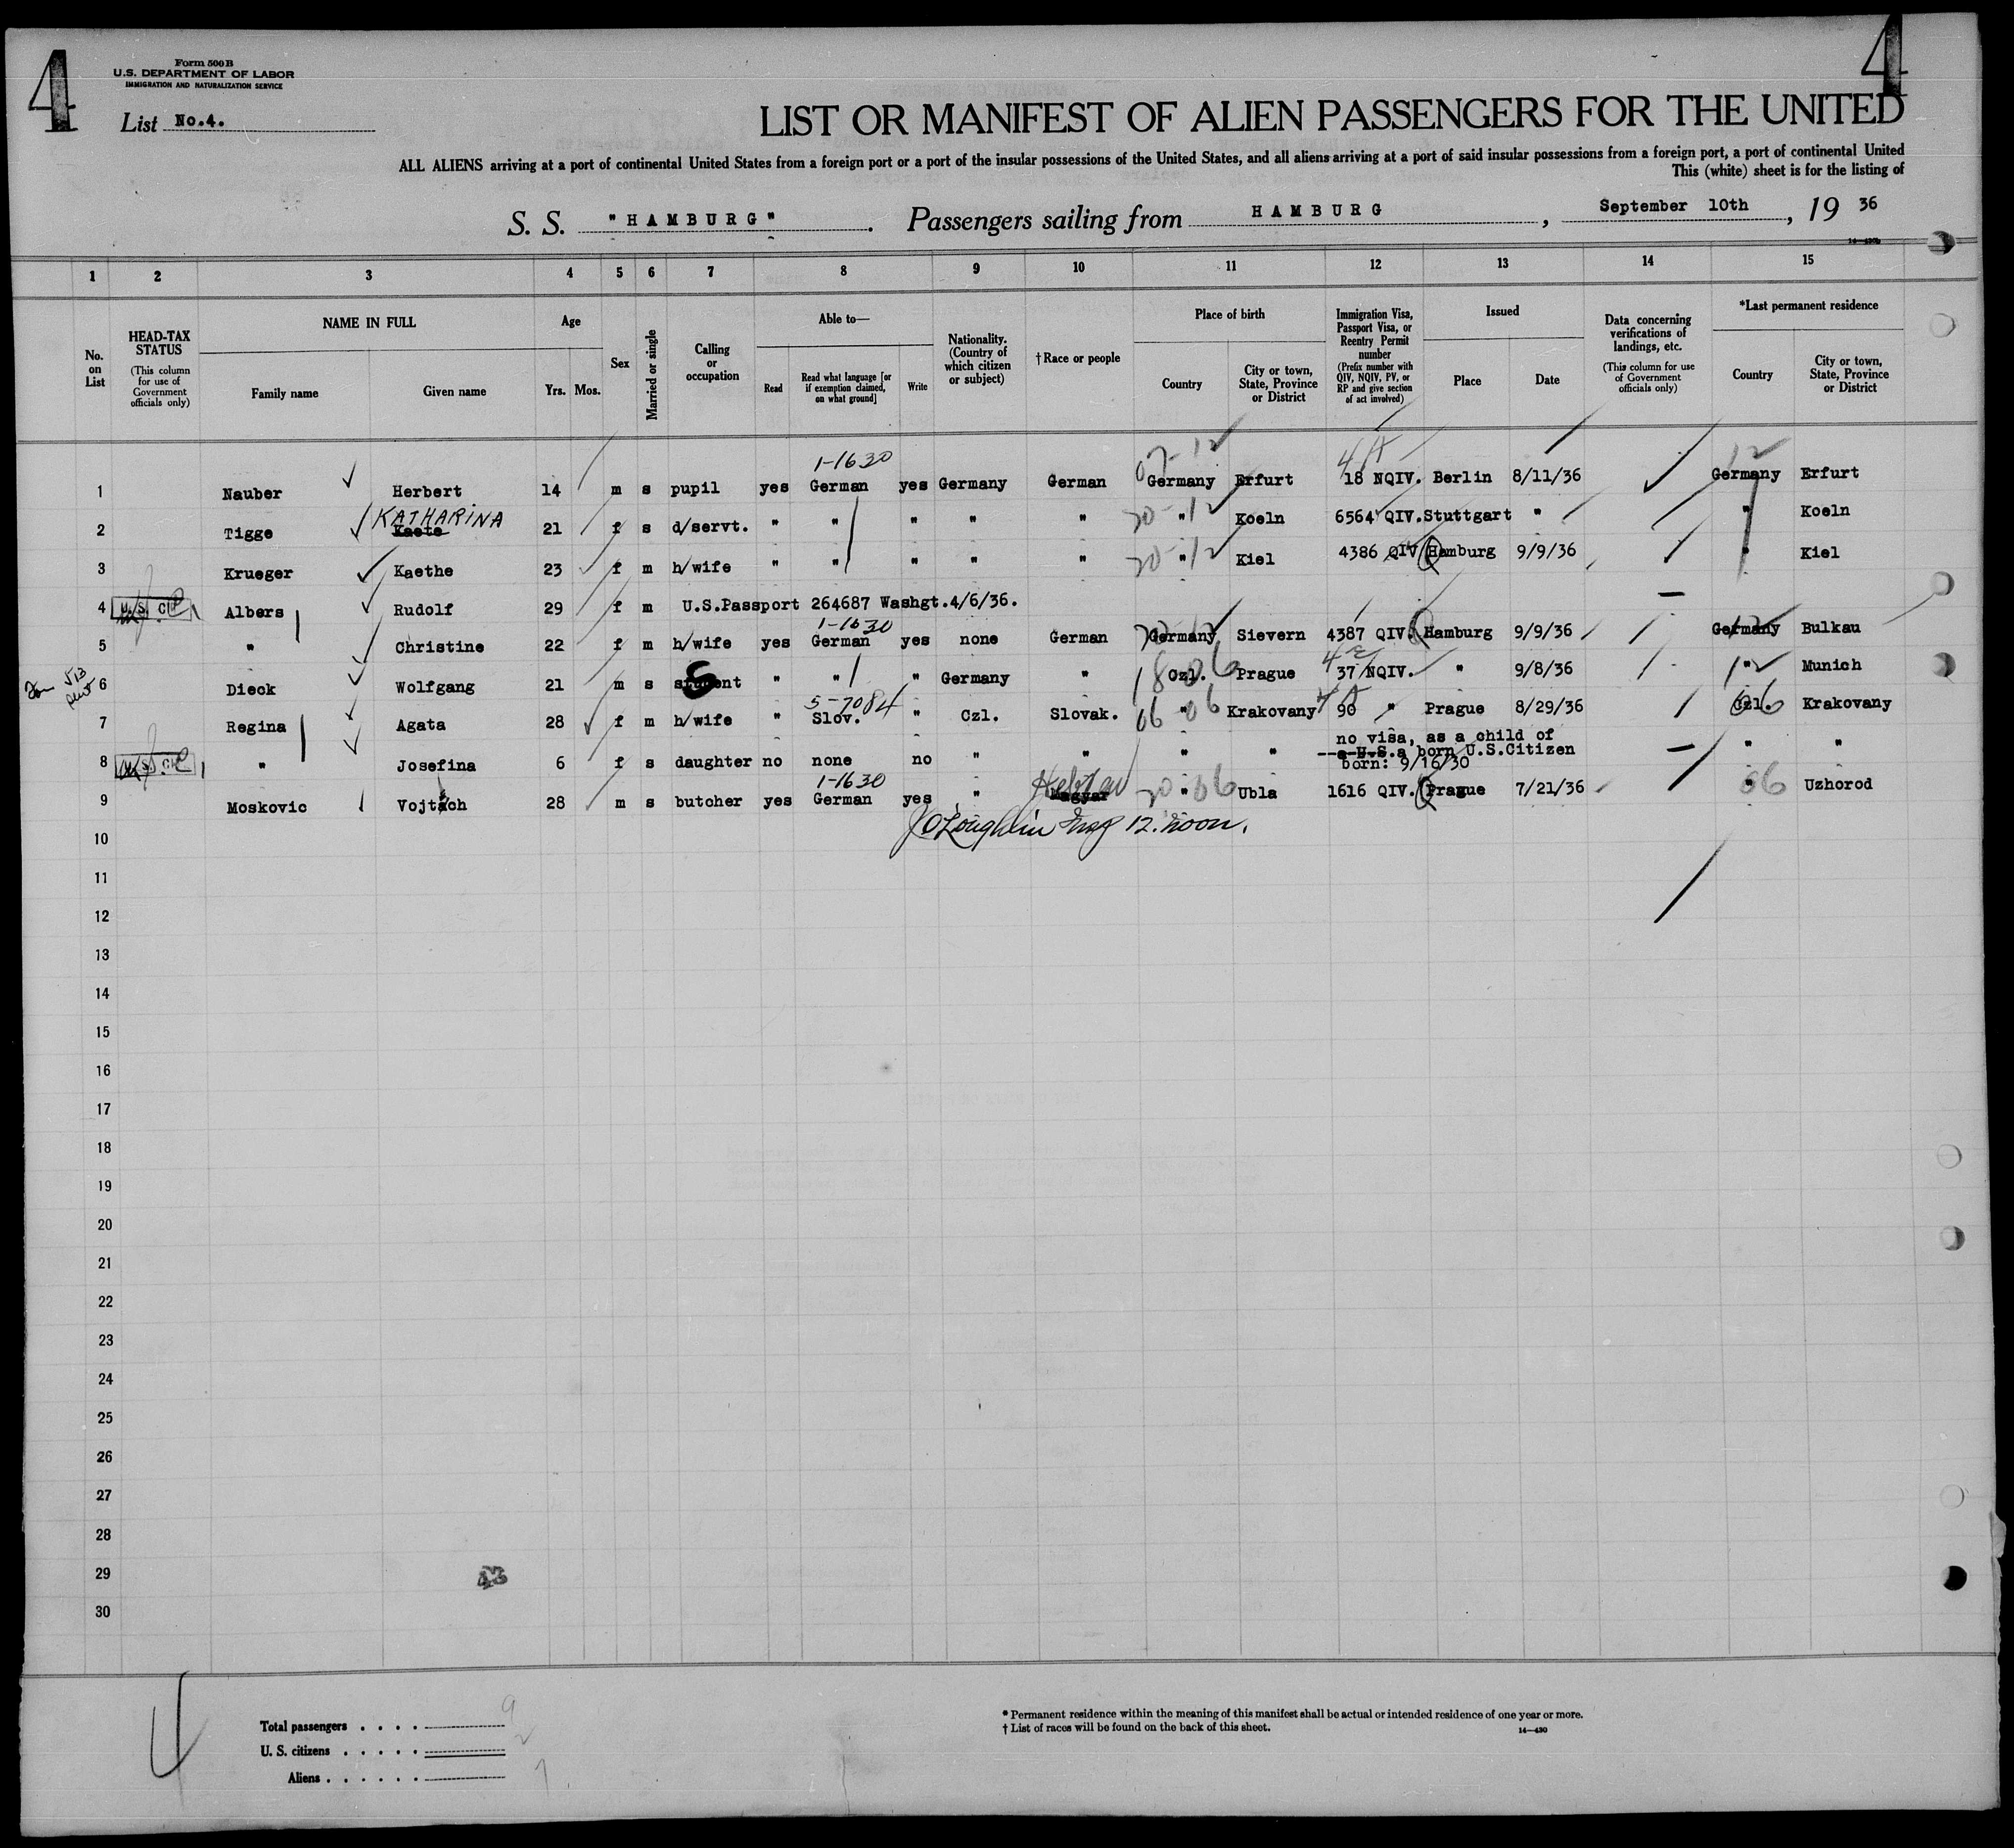 4
4
Form 500 B
U.S. DEPARTMENT OF LABOR
IMMIGRATION AND NATURALIZATION SERVICE
List No.4.
LIST OR MANIFEST OF ALIEN PASSENGERS FOR THE UNITED
ALL ALIENS arriving at a port of continental United States from a foreign port or a port of the insular possessions of the United States, and all aliens arriving at a port of said insular possessions from a foreign port, a port of continental United
This (white) sheet is for the listing of
S. S. "HAMBURG". Passengers sailing from HAMBURG, September 10th, 19 36
1 2 3 4 5 6 7 8 9 10 11 12 13 14 15
No. on List
HEAD-TAX STATUS (This column for use of Government officials only)
NAME IN FULL
Family name Given name
Age
Yrs. Mos.
Sex
Married or single
Calling or occupation
Able to—
Read Read what language [or if exemption claimed, on what ground] Write
Nationality. (Country of which citizen or subject)
† Race or people
Place of birth
Country City or town, State, Province or District
Immigration Visa, Passport Visa, or Reentry Permit number (Prefix number with QIV, NQIV, PV, or RP and give section of act involved)
Issued
Place Date
Data concerning verifications of landings, etc. (This column for use of Government officials only)
*Last permanent residence
Country City or town, State, Province or District
1-1630 07-12 12
1 Nauber Herbert 14 m s pupil yes German yes Germany German Germany Erfurt 18 NQIV. Berlin 8/11/36 Germany Erfurt
KATHARINA
2 Tigge Kaete 21 f s d/servt. " " " " " 20-12 " Koeln 6564 QIV. Stuttgart " " Koeln
3 Krueger Kaethe 23 f m h/wife " " " " " 20-12 " Kiel 4386 QIV Hamburg 9/9/36 " Kiel
4 U. S. CI Albers Rudolf 29 f m U.S.Passport 264687 Washgt.4/6/36.
1-1630
5 " Christine 22 f m h/wife yes German yes none German Germany Sievern 4387 QIV. Hamburg 9/9/36 Germany Bulkau
6 Dieck Wolfgang 21 m s student S " " " Germany " 18 06 Czl. Prague 37 NQIV. " 9/8/36 12 " Munich
5-7084
7 Regina Agata 28 f m h/wife " Slov. " Czl. Slovak. 06 06 " Krakovany 90 " Prague 8/29/36 06 Czl. Krakovany
no visa, as a child of
8 U. S. CI " Josefina 6 f s daughter no none no " " " " a U.S.a born U.S.Citizen " "
born: 9/16/30
1-1630 Hebrew
9 Moskovic Vojtech 28 m s butcher yes German yes " Magyar 20 06 " Ubla 1616 QIV. Prague 7/21/36 06 " Uzhorod
10 J O'Loughlin Insp 12. noon.
11
12
13
14
15
16
17
18
19
20
21
22
23
24
25
26
27
28
29
43
30
Total passengers . . . . 9
U. S. citizens . . . . . 2
Aliens . . . . . . 7
* Permanent residence within the meaning of this manifest shall be actual or intended residence of one year or more.
† List of races will be found on the back of this sheet. 14—430